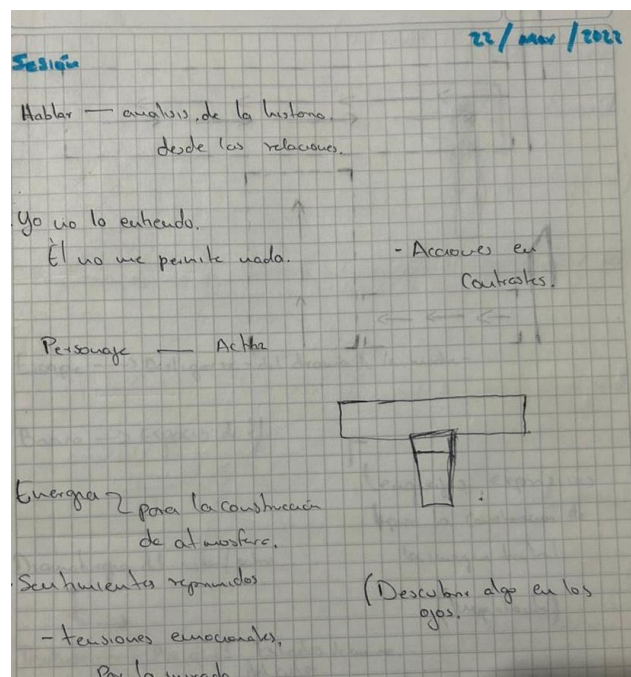 22/Mar/2022
Sesión
Hablar — analisis de la historia.
desde las relaciones.
Yo no lo entiendo.
Él no me permite nada.
- Acciones en
Contrastes.
Personaje — Actriz
Energia
para la construcción
de atmosfera.
Sentimientos reprimidos
(Descubrir algo en los
ojos.
- tensiones emocionales,
Por la mirada